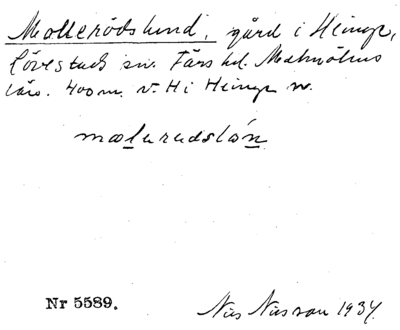 Mollerödslund, gård i Heinge,
Lövestads sn. Färs hd. Malmöhus
län. 400 m. v. H i Heinge w.
molerudslón
Nr 5589.
Nils Nilsson 1934.